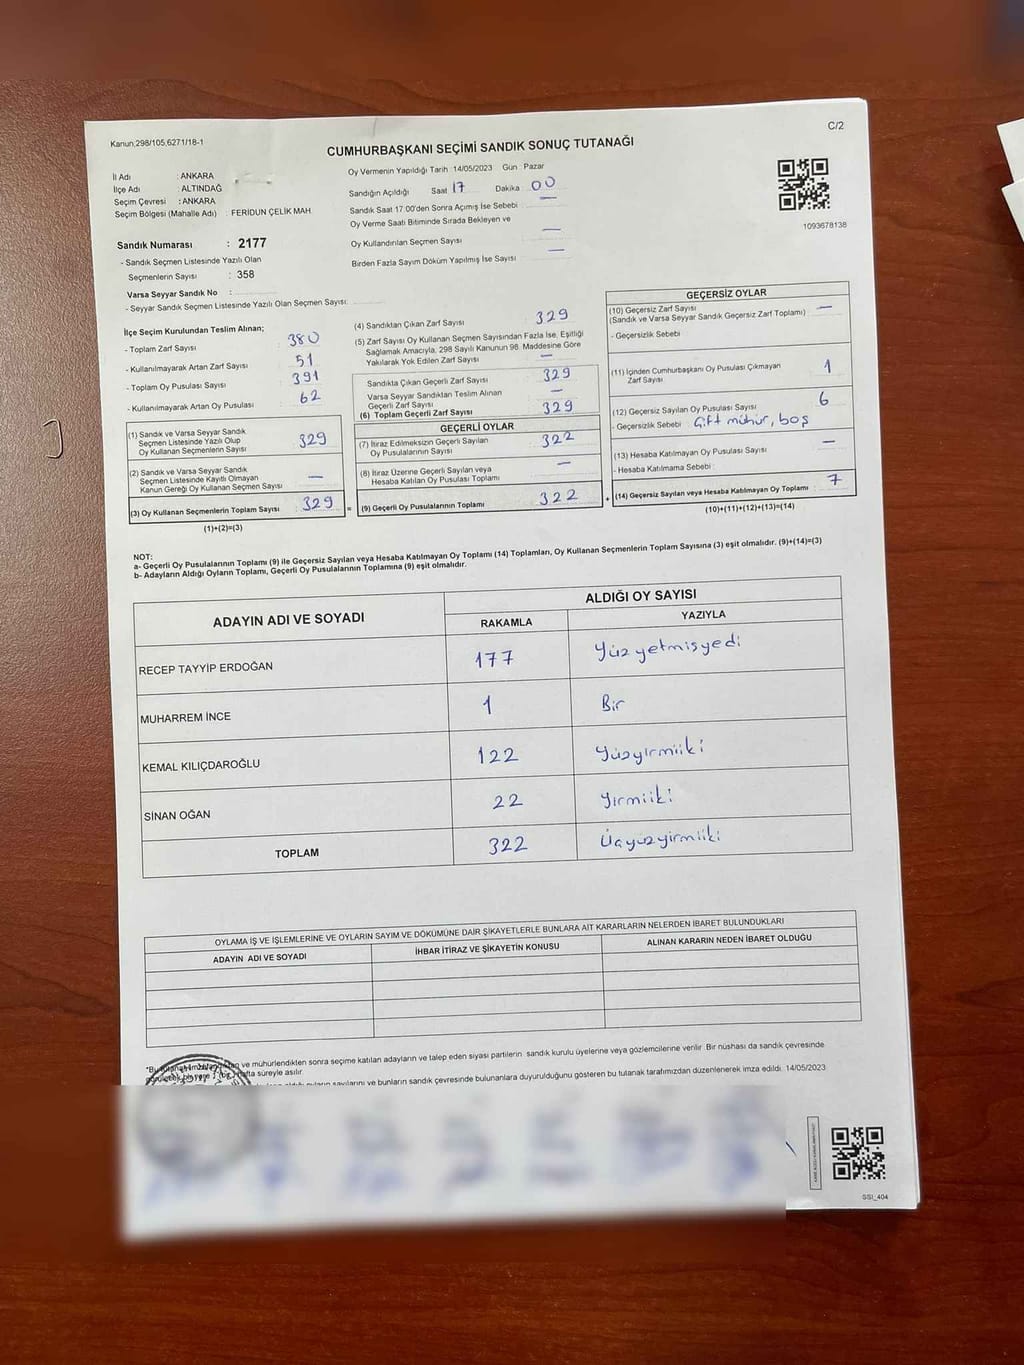 Kanun,298/105,6271/18-1
C/2
CUMHURBAŞKANI SEÇİMİ SANDIK SONUÇ TUTANAĞI
İl Adı : ANKARA
İlçe Adı : ALTINDAĞ
Seçim Çevresi : ANKARA
Seçim Bölgesi (Mahalle Adı) : FERİDUN ÇELİK MAH.
Oy Vermenin Yapıldığı Tarih :14/05/2023 Gün : Pazar
Sandığın Açıldığı Saat 17 Dakika 00
Sandık Saat 17:00'den Sonra Açımış İse Sebebi —
Oy Verme Saati Bitiminde Sırada Bekleyen ve
Oy Kullandırılan Seçmen Sayısı —
Birden Fazla Sayım Döküm Yapılmış İse Sayısı —
1093678138
Sandık Numarası : 2177
- Sandık Seçmen Listesinde Yazılı Olan
Seçmenlerin Sayısı : 358
Varsa Seyyar Sandık No :
- Seyyar Sandık Seçmen Listesinde Yazılı Olan Seçmen Sayısı:
İlçe Seçim Kurulundan Teslim Alınan;
- Toplam Zarf Sayısı 380
- Kullanılmayarak Artan Zarf Sayısı 51
- Toplam Oy Pusulası Sayısı 391
- Kullanılmayarak Artan Oy Pusulası 62
(1) Sandık ve Varsa Seyyar Sandık
Seçmen Listesinde Yazılı Olup
Oy Kullanan Seçmenlerin Sayısı 329
(2) Sandık ve Varsa Seyyar Sandık
Seçmen Listesinde Kayıtlı Olmayan
Kanun Gereği Oy Kullanan Seçmen Sayısı —
(3) Oy Kullanan Seçmenlerin Toplam Sayısı 329
(1)+(2)=(3)
(4) Sandıktan Çıkan Zarf Sayısı 329
(5) Zarf Sayısı Oy Kullanan Seçmen Sayısından Fazla İse, Eşitliği
Sağlamak Amacıyla, 298 Sayılı Kanunun 98. Maddesine Göre
Yakılarak Yok Edilen Zarf Sayısı —
Sandıkta Çıkan Geçerli Zarf Sayısı 329
Varsa Seyyar Sandıktan Teslim Alınan
Geçerli Zarf Sayısı —
(6) Toplam Geçerli Zarf Sayısı 329
GEÇERLİ OYLAR
(7) İtiraz Edilmeksizin Geçerli Sayılan
Oy Pusulalarının Sayısı 322
(8) İtiraz Üzerine Geçerli Sayılan veya
Hesaba Katılan Oy Pusulası Toplamı —
= (9) Geçerli Oy Pusulalarının Toplamı 322
GEÇERSİZ OYLAR
(10) Geçersiz Zarf Sayısı —
(Sandık ve Varsa Seyyar Sandık Geçersiz Zarf Toplamı)
- Geçersizlik Sebebi
(11) İçinden Cumhurbaşkanı Oy Pusulası Çıkmayan
Zarf Sayısı 1
(12) Geçersiz Sayılan Oy Pusulası Sayısı 6
- Geçersizlik Sebebi Çift mühür, boş
(13) Hesaba Katılmayan Oy Pusulası Sayısı —
- Hesaba Katılmama Sebebi
+ (14) Geçersiz Sayılan veya Hesaba Katılmayan Oy Toplamı 7
(10)+(11)+(12)+(13)=(14)
NOT:
a- Geçerli Oy Pusulalarının Toplamı (9) ile Geçersiz Sayılan veya Hesaba Katılmayan Oy Toplamı (14) Toplamları, Oy Kullanan Seçmenlerin Toplam Sayısına (3) eşit olmalıdır. (9)+(14)=(3)
b- Adayların Aldığı Oyların Toplamı, Geçerli Oy Pusulalarının Toplamına (9) eşit olmalıdır.
ADAYIN ADI VE SOYADI
ALDIĞI OY SAYISI
RAKAMLA YAZIYLA
RECEP TAYYİP ERDOĞAN 177 Yüzyetmişyedi
MUHARREM İNCE 1 Bir
KEMAL KILIÇDAROĞLU 122 Yüzyirmiiki
SİNAN OĞAN 22 Yirmiiki
TOPLAM 322 Üçyüzyirmiiki
OYLAMA İŞ VE İŞLEMLERİNE VE OYLARIN SAYIM VE DÖKÜMÜNE DAİR ŞİKAYETLERLE BUNLARA AİT KARARLARIN NELERDEN İBARET BULUNDUKLARI
ADAYIN ADI VE SOYADI İHBAR İTİRAZ VE ŞİKAYETİN KONUSU ALINAN KARARIN NEDEN İBARET OLDUĞU
ve mühürlendikten sonra seçime katılan adayların ve talep eden siyasi partilerin sandık kurulu üyelerine veya gözlemcilerine verilir. Bir nüshası da sandık çevresinde
hafta süreyle asılır.
sayılarını ve bunların sandık çevresinde bulunanlara duyurulduğunu gösteren bu tutanak tarafımızdan düzenlenerek imza edildi. 14/05/2023
SSİ_404